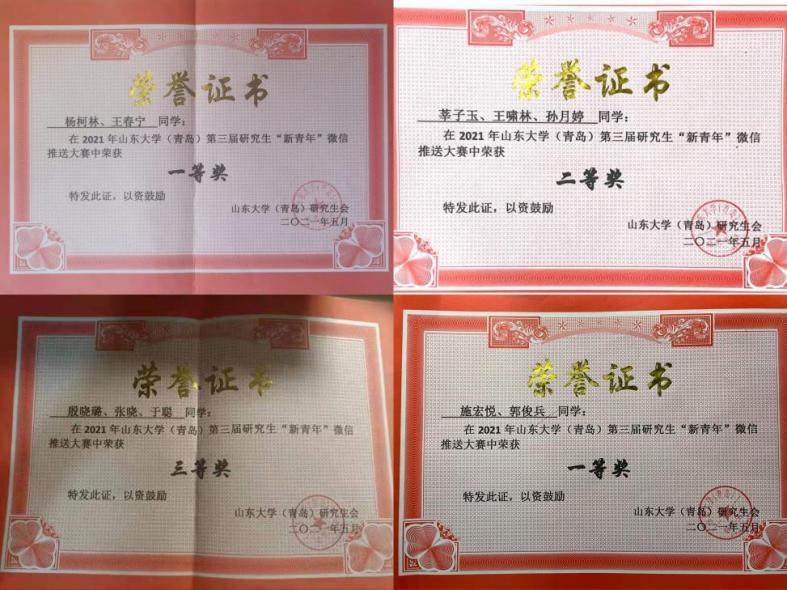 荣誉证书
杨柯林、王春宁 同学：
在 2021 年山东大学（青岛）第三届研究生“新青年”微信
推送大赛中荣获
一等奖
特发此证，以资鼓励
山东大学（青岛）研究生会
二〇二一年五月
荣誉证书
莘子玉、王啸林、孙月婷 同学：
在 2021 年山东大学（青岛）第三届研究生“新青年”微信
推送大赛中荣获
二等奖
特发此证，以资鼓励
山东大学（青岛）研究生会
二〇二一年五月
荣誉证书
殷晓璐、张晓、于聪 同学：
在 2021 年山东大学（青岛）第三届研究生“新青年”微信
推送大赛中荣获
三等奖
特发此证，以资鼓励
山东大学（青岛）研究生会
二〇二一年五月
荣誉证书
施宏悦、郭俊兵 同学：
在 2021 年山东大学（青岛）第三届研究生“新青年”微信
推送大赛中荣获
一等奖
特发此证，以资鼓励
山东大学（青岛）研究生会
二〇二一年五月